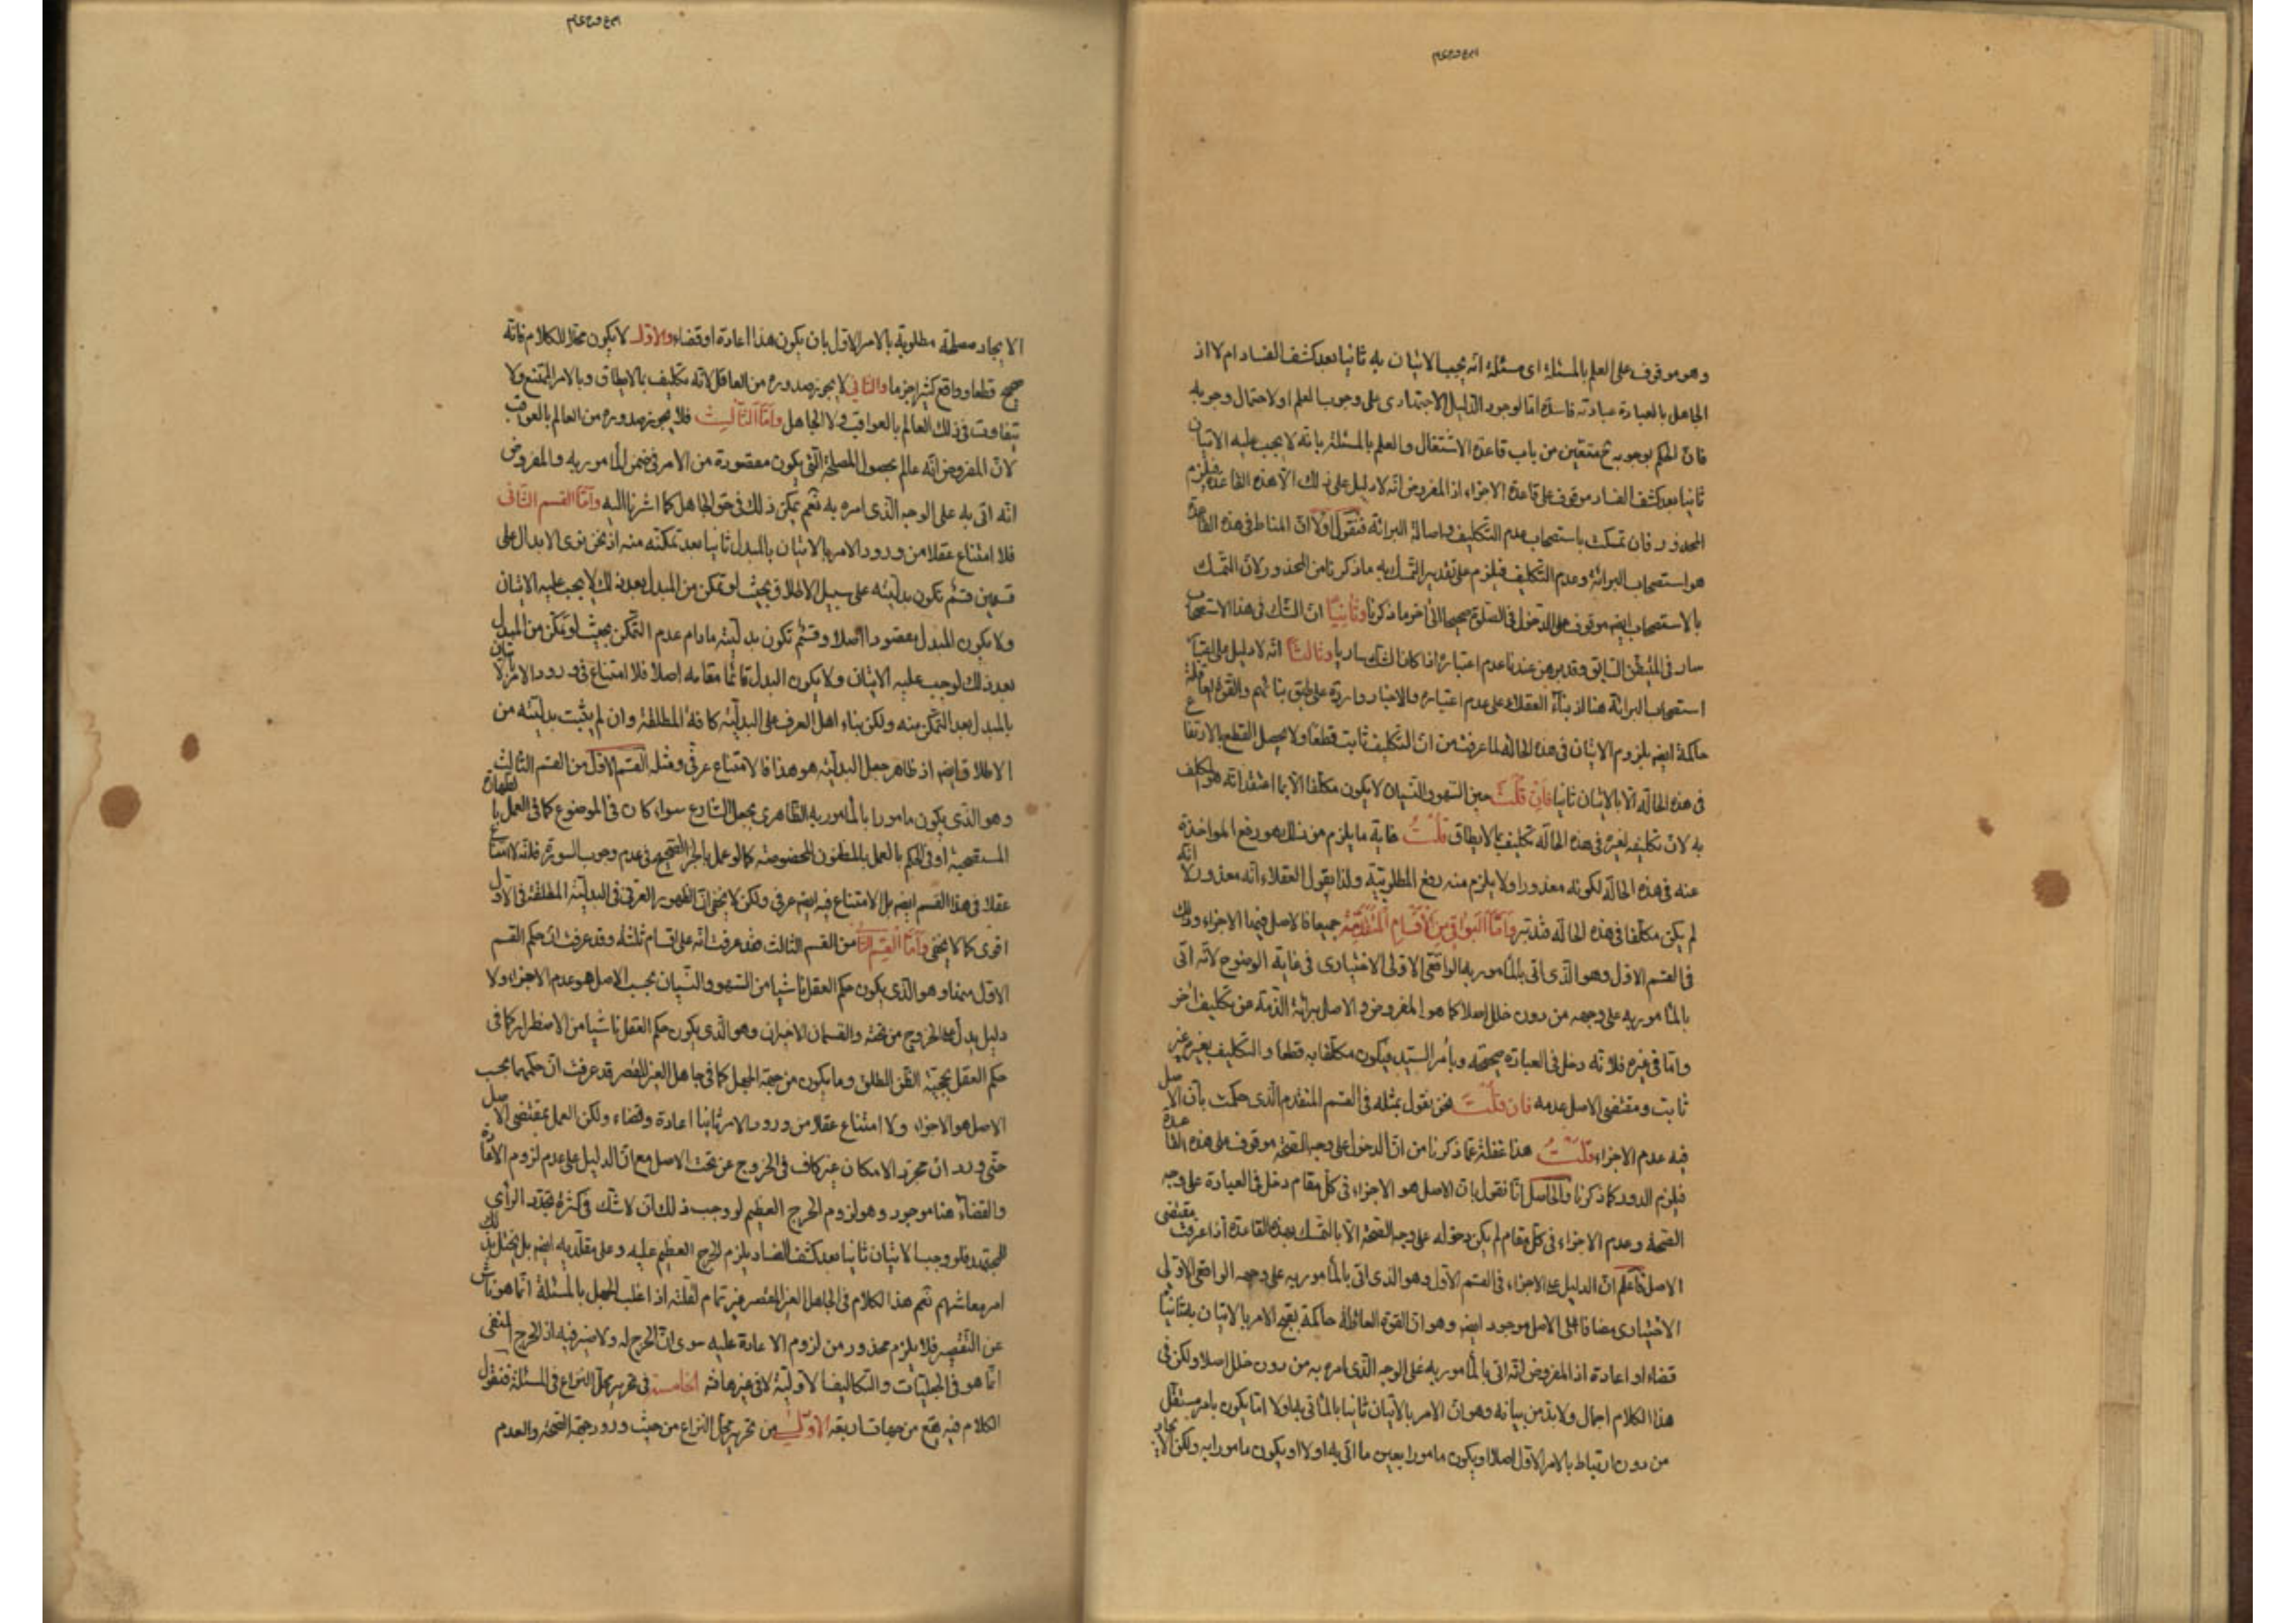 وهو موقوف على العلم بالمسئلة اى مسئلة انه يجب الاتيان به ثانيا بعد كشف الفساد ام لا اذ
الجاهل بالعبادة عبادته فاسدة امّا لوجود الدليل الاجتهادى على وجوب العلم او لاحتمال وجوبه
فانّ الحكم بوجوبه متعيّن من باب قاعدة الاشتغال والعلم بالمسئلة بانه لا يجب عليه الاتيان
ثانيا بعد كشف الفساد موقوف على قاعدة الاجزاء اذ المفروض انه لا دليل على ذلك الّا هذه القاعدة فيلزم
المحذور فان تمسكت باستصحاب عدم التكليف واصالة البرائة فنقول اولا انّ المناط فى هذه القاعدة
هو استصحاب البرائة وعدم التكليف فيلزم على تقدير التمسك به ما ذكرنا من المحذور لانّ التمسك
بالاستصحاب ايضا موقوف على الدخول فى الصلوة صحيحا الى اخر ما ذكرنا وثانيا انّ الشك فى هذا الاستصحاب
سار فى المتيقن السابق وقد برهن عندنا عدم اعتباره اذا كان الشك ساريا وثالثا انه لا دليل على اعتبار
استصحاب البرائة هنا اذ بناء العقلاء على عدم اعتباره والاخبار واردة على طبق بنائهم والقوة العاقلة
حاكمة ايضا بلزوم الاتيان فى هذه الحالة لما عرفت من انّ التكليف ثابت قطعا ولا يحصل القطع بالارتفاع
فى هذه الحالة الّا بالاتيان ثانيا فان قلت حين السهو والنسيان لا يكون مكلفا الّا بما اعتقد انه مكلف
به لانّ تكليفه لغيره فى هذه الحالة تكليف بما لا يطاق قلت غاية ما يلزم من ذلك هو رفع المواخذة
عنه فى هذه الحالة لكونه معذورا ولا يلزم منه رفع المطلوبية ولذا يقول العقلاء انه معذور لا انه
لم يكن مكلفا فى هذه الحالة فتدبّر وامّا البواقى من الاقسام المتقدّمة جميعا فالاصل فيها الاجزاء وذلك
فى القسم الاول وهو الذى اتى بالمأمور به الواقعى الاولى الاختيارى فى غاية الوضوح لانّه اتى
بالمأمور به على وجهه من دون خلل اصلا كما هو المفروض والاصل برائة الذمة من تكليف اخر
وامّا فى غيره فلانه دخل فى العبادة صحيحة وبأمر السيد فيكون مكلفا به قطعا والتكليف بغيره غير
ثابت ومقتضى الاصل عدمه فان قلت نحن نقول بمثله فى القسم المتقدم الذى حكمت بأن الاصل
فيه عدم الاجزاء قلت هذا غفلة عمّا ذكرنا من انّ الدخول على وجه الصحة موقوف على هذه القاعدة
فيلزم الدور كما ذكرنا والحاصل انّا نقول بانّ الاصل هو الاجزاء فى كلّ مقام دخل فى العبادة على وجه
الصحة وعدم الاجزاء فى كلّ مقام لم يكن دخوله على وجه الصحة الّا بالتمسك بهذه القاعدة اذا عرفت مقتضى
الاصل فاعلم انّ الدليل على الاجزاء فى القسم الاول وهو الذى اتى بالمأمور به على وجهه الواقعى الاولى
الاختيارى مضافا الى الاصل موجود ايضا وهو انّ القوة العاقلة حاكمة بقبح الامر بالاتيان به ثانيا
قضاء او اعادة اذ المفروض انه اتى بالمأمور به على الوجه الذى امره به من دون خلل اصلا ولكن فى
هذا الكلام اجمال ولا بدّ من بيانه وهو انّ الامر بالاتيان ثانيا بالمأتى به اولا امّا يكون بامر مستقل
من دون ارتباط بالامر الاول اصلا او يكون مامورا بعين ما اتى به اولا او يكون مامورا به ولكن لايجاد
الايجاد مصلحة مطلوبة بالامر الاول بان يكون هذا اعادة او قضاء والاول لا يكون محلا للكلام فانّه
صحيح قطعا وواقع كثيرا جزما والثانى لا يجوز صدوره من العاقل لانّه تكليف بما لا يطاق وبالامر الممتنع ولا
يتفاوت فى ذلك العالم بالعواقب ولا الجاهل وامّا الثالث فلا يجوز صدوره من العالم بالعواقب
لانّ المفروض انّه عالم بحصول المصلحة التى يكون مقصودة من الامر فى ضمن المأمور به والمفروض
انه اتى به على الوجه الذى امره به نعم يمكن ذلك فى حق الجاهل كما اشرنا اليه وامّا القسم الثانى
فلا امتناع عقلا من ورود الامر بالاتيان بالمبدل ثانيا بعد تمكنه منه اذ نحن نرى الابدال على
قسمين قسم تكون بدليته على سبيل الاطلاق بحيث لو تمكن من المبدل بعد ذلك لا يجب عليه الاتيان
ولا يكون المبدل مقصودا اصلا وقسم تكون بدليته مادام عدم التمكن بحيث لو تمكن من المبدل
بعد ذلك لوجب عليه الاتيان ولا يكون البدل قائما مقامه اصلا فلا امتناع فى ورود الامر بالاتيان
بالمبدل بعد التمكن منه ولكن بناء اهل العرف على البدلية كافة المطلقة وان لم يثبت بدليته من
الاطلاق ايضا اذ ظاهر جعل البدلية هو هذا فالامتناع عرفى ومثله القسم الاول من القسم الثالث
وهو الذى يكون مامورا بالمأمور به الظاهرى بجعل الشارع سواء كان فى الموضوع كما فى العمل بالطهارة
المستصحبة او فى الحكم بالعمل بالمظنون المخصوصة كما لو عمل بالخبر الصحيح فى عدم وجوب السورة فلانّه لا امتناع
عقلا فى هذا القسم ايضا بل الامتناع فيه ايضا عرفى ولكن لا يخفى انّ الظهور العرفى فى البدلية المطلقة فى الاول
اقوى كما لا يخفى وامّا القسم الثانى من القسم الثالث فقد عرفت انّه على اقسام ثلثة وقد عرفت انّ حكم القسم
الاول منها وهو الذى يكون حكم العقل ناشيا من السهو والنسيان بحسب الاصل هو عدم الاجزاء ولا
دليل يدلّ على الخروج من تحته والقسمان الاخيران وهو الذى يكون حكم العقل ناشيا من الاضطرار كما فى
حكم العقل بحجيّة الظنّ المطلق وما يكون من جهة الجهل كما فى جاهل الغير المقصر قد عرفت انّ حكمهما بحسب
الاصل هو الاجزاء ولا امتناع عقلا من ورود الامر ثانيا اعادة وقضاء ولكن العمل بمقتضى الاصل
حتّى ورد انّ مجرّد الامكان غير كاف فى الخروج عن تحت الاصل مع انّ الدليل على عدم لزوم الاعادة
والقضاء هنا موجود وهو لزوم الحرج العظيم لو وجب ذلك لان لا شك فى كثرة تجدّد الرأى
للمجتهد فلو وجب الاتيان ثانيا بعد كشف الفساد يلزم الحرج العظيم عليه وعلى مقلّديه ايضا بل يختل بذلك
امر معاشهم نعم هذا الكلام فى الجاهل الغير المقصر غير تمام لقلّته اذ اغلب الجهل بالمسئلة انّما هو ناش
عن التقصير فلا يلزم محذور من لزوم الاعادة عليه سوى انّ الحرج له ولا ضير فيه اذ الحرج المنفى
انّما هو فى الجبليّات والتكاليف الاولية لا فى غيرها الخامسة فى تحرير محل النزاع فى المسئلة فنقول
الكلام فيه يقع من جهات اربعة الاولى من تحرير محل النزاع من حيث ورود جهة الصحة والعدم